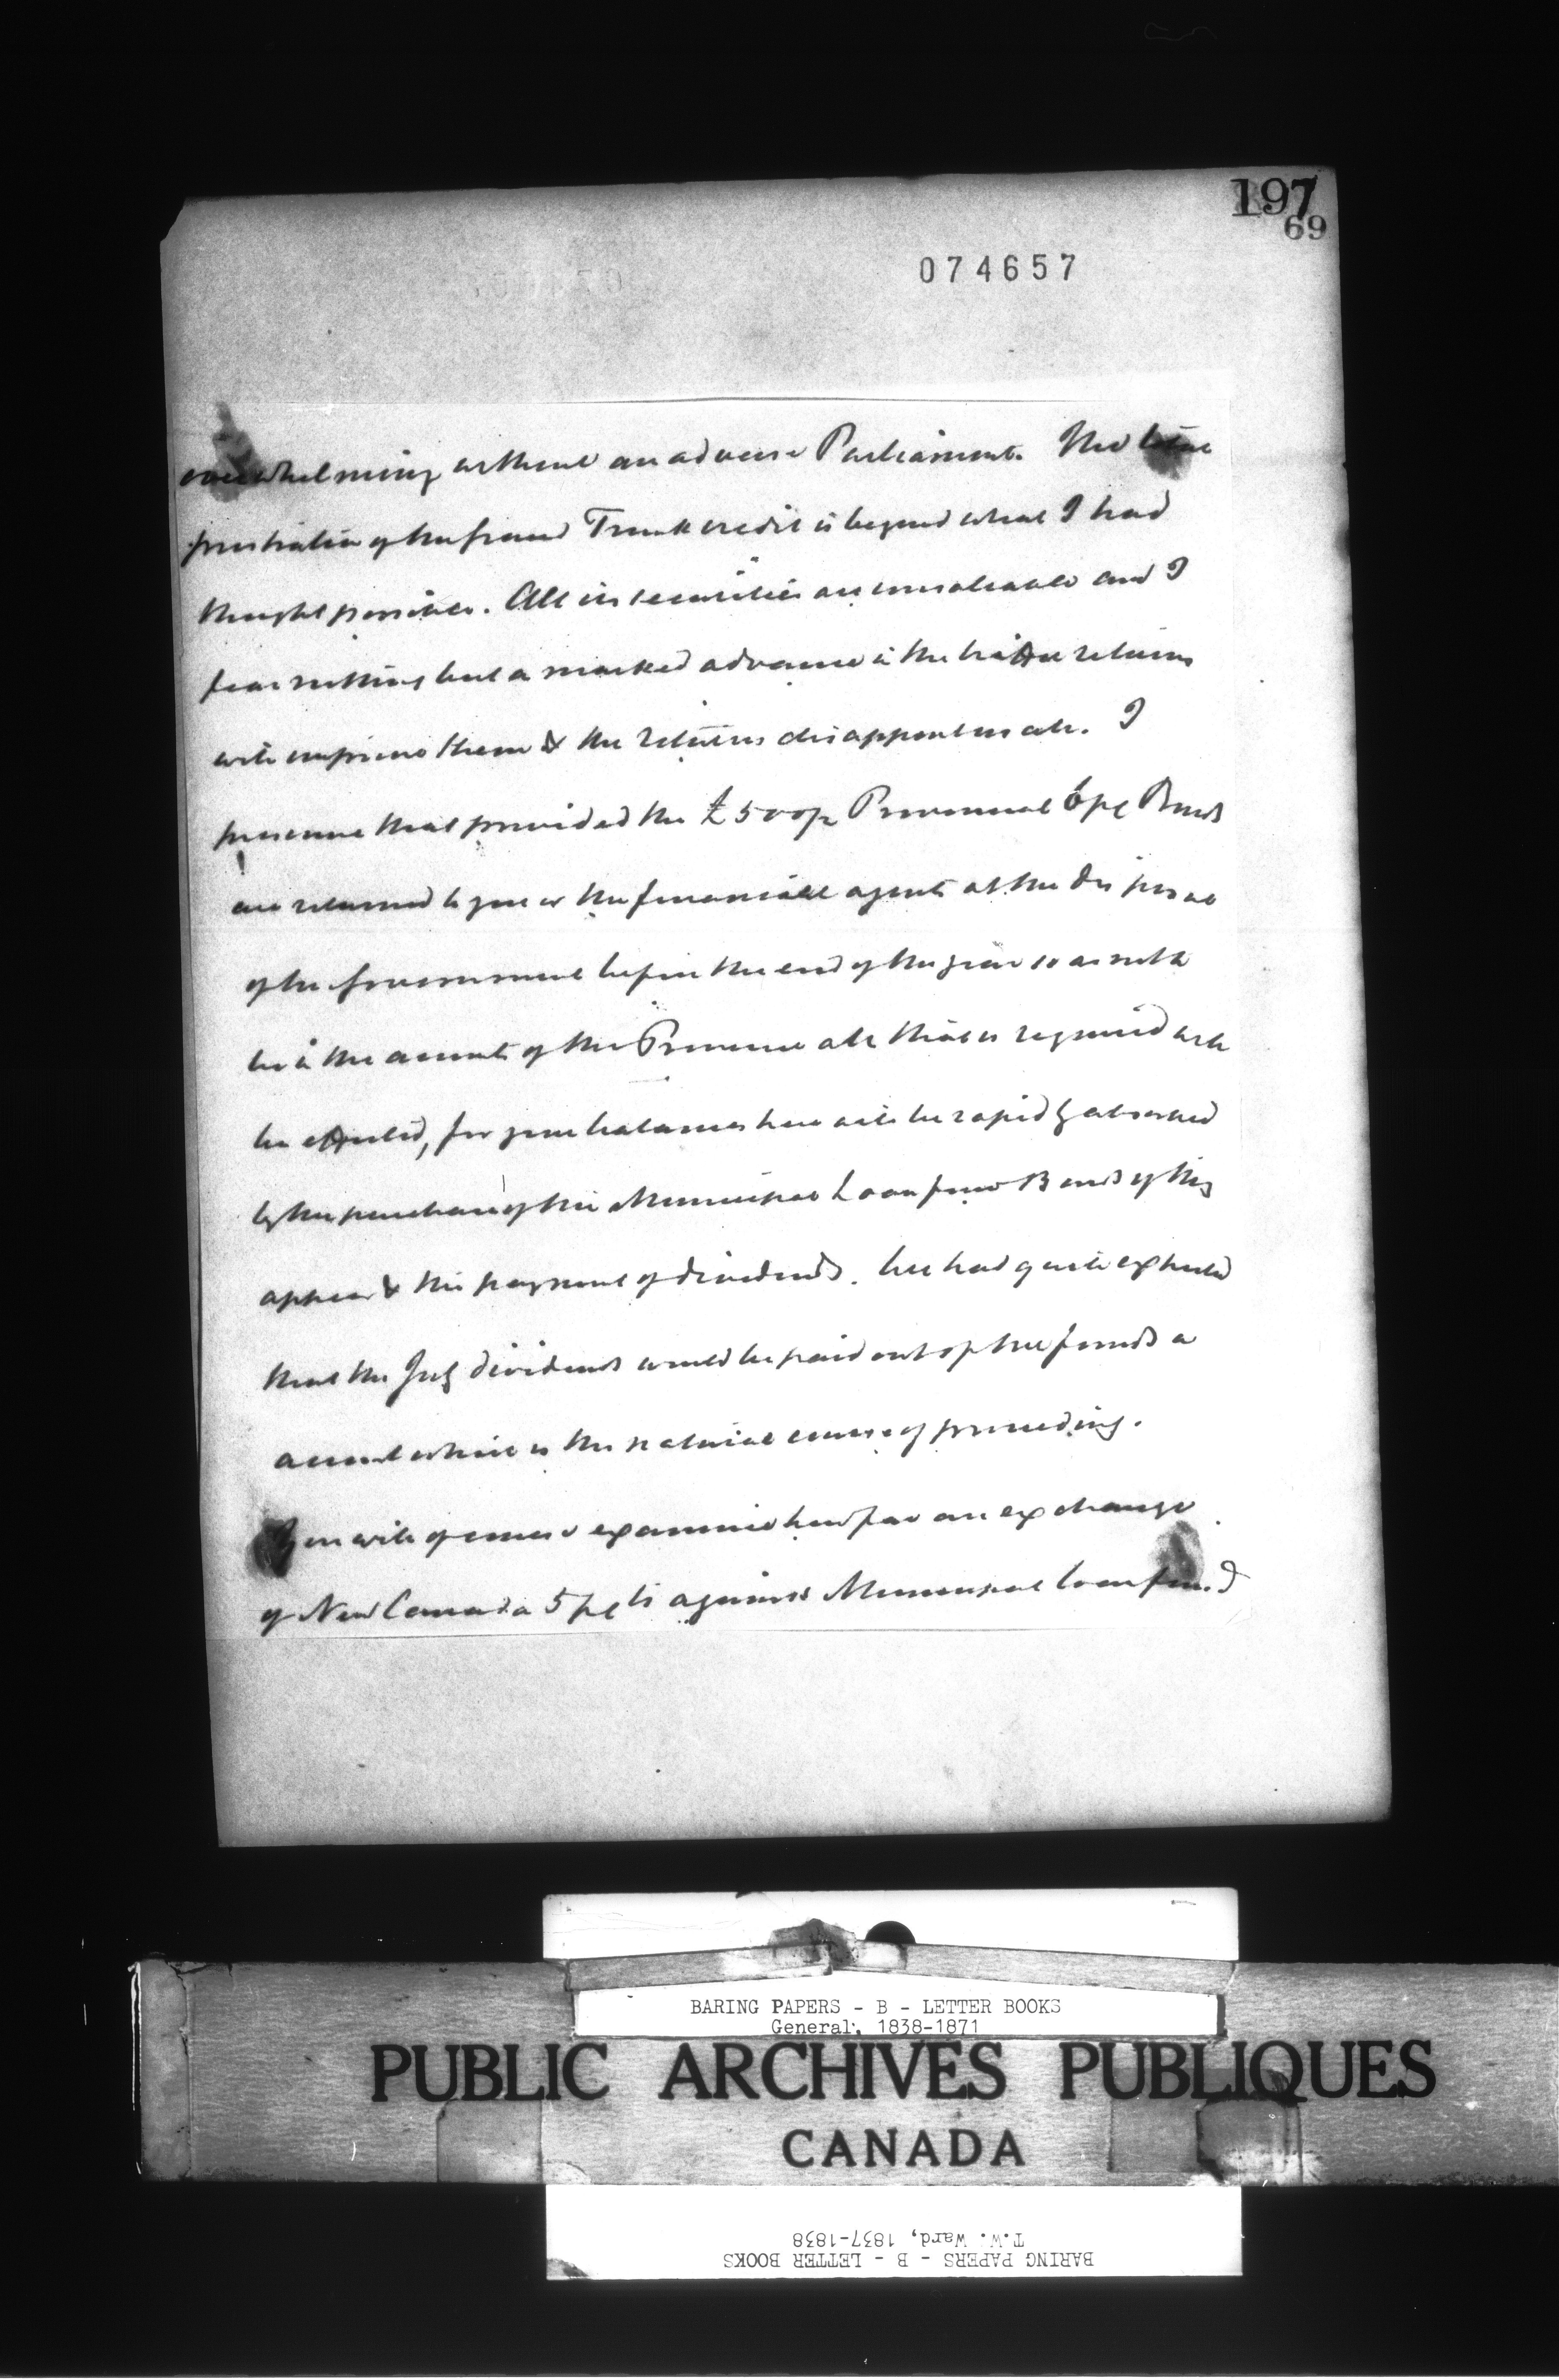 197
69
074657
overwhelming without an adverse Parliament. The total
prostration of the Grand Trunk credit is beyond what I had
thought possible. All its securities are unsaleable and I
fear nothing but a marked advance in the traffic returns
will improve them & the returns disappoint us all. I
presume that provided the £500/m Provincial 6 pC Bonds
are returned to you or the financial agents at the disposal
of the Government before the end of the year so as not to
be in the accounts of the Province all that is required will
be effected, for your balances here will be rapidly absorbed
by the purchase of the Municipal Loan fund Bonds if they
appear & the payment of dividends. We had quite expected
that the July dividends would be paid out of the funds a
account which is the natural course of proceeding.
You will of course examine how far an exchange
of New Canada 5 pCts against Municipal loan fund
BARING PAPERS - B - LETTER BOOKS
General, 1838-1871
PUBLIC ARCHIVES PUBLIQUES
CANADA
T.W. Ward, 1837-1838
BARING PAPERS - B - LETTER BOOKS